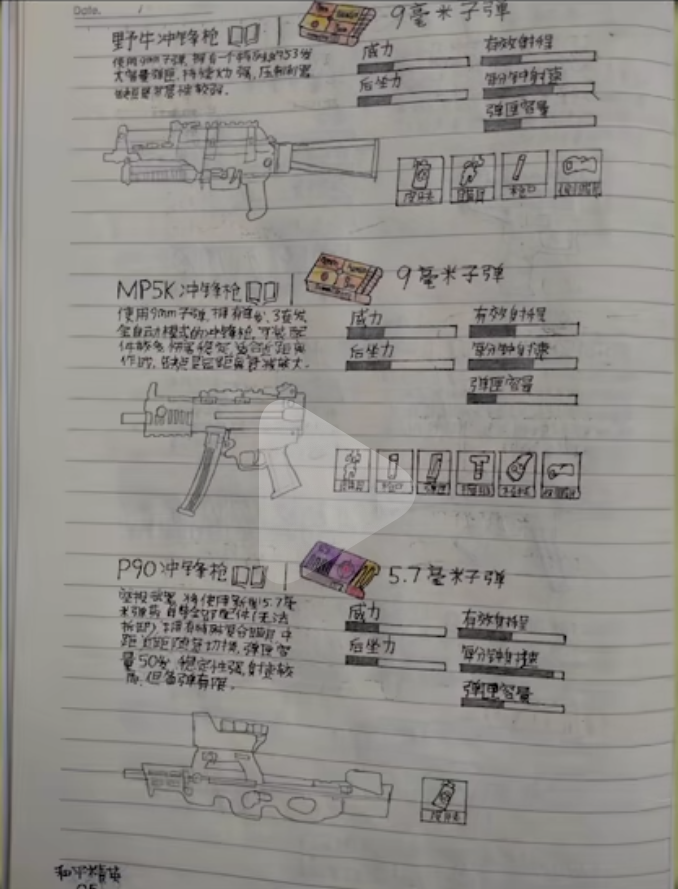 Date. /
野牛冲锋枪
9毫米子弹
使用9mm子弹,拥有一个特别的53发
大容量弹匣,持续力强,压制
威力
有效射程
后坐力
每分钟射速
弹匣容量
握把
枪口
MP5K冲锋枪
9毫米子弹
使用9mm子弹,拥有单发、3连发
全自动模式的冲锋枪,可装配
件较多,伤害稳定,适合近距离
作战,缺点是远距离
威力
有效射程
后坐力
每分钟射速
弹匣容量
枪口
弹匣
P90冲锋枪
5.7毫米子弹
空投武器,将使用新型5.7毫
米弹药,自带全部配件(无法
拆卸),拥有特制复合瞄具,中
距近距随意切换,弹匣容
量50发,稳定性强,射速较
高,但备弹有限。
威力
有效射程
后坐力
每分钟射速
弹匣容量
和平精英
05